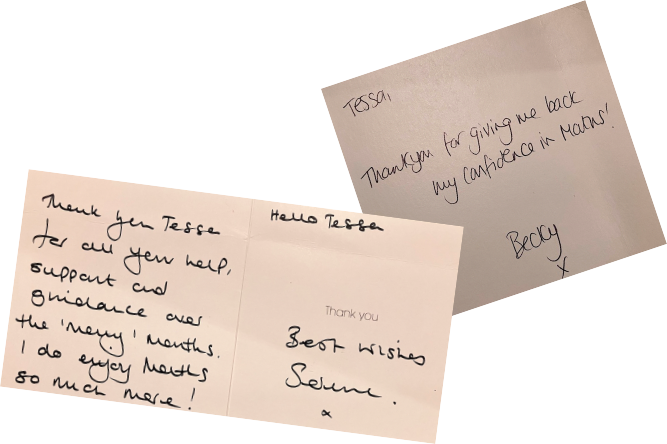 Tessa,
Thankyou for giving me back
my confidence in Maths!
Becky
x
Thank you Tessa
for all your help,
support and
guidance over
the 'many' months.
I do enjoy Maths
so much more!
Hello Tessa
Thank you
Best wishes
x